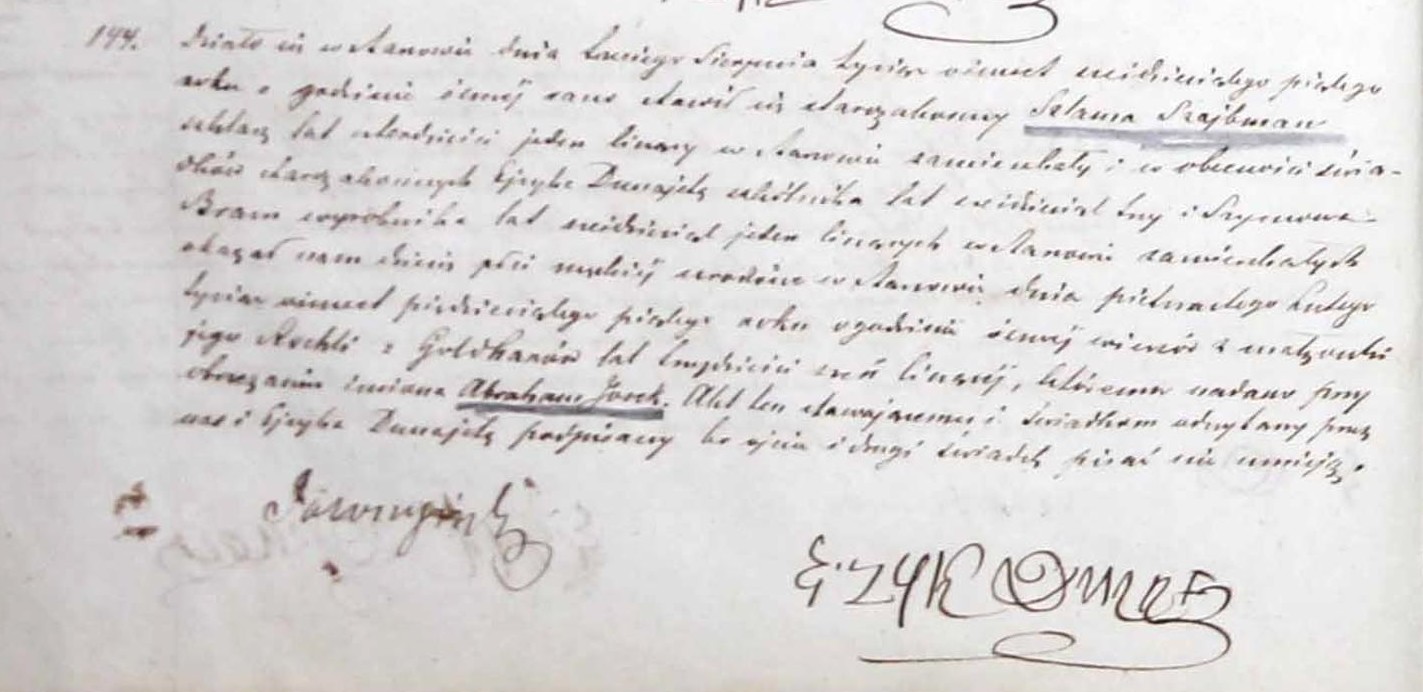 144. Działo się w Stanowie dnia trzeciego Sierpnia tysiąc ośmset sześćdziesiątego piątego
roku o godzinie ósmej rano stawił się starozakonny Szlama Szajbman
lat czterdzieści jeden liczący w Stanowie zamieszkały i w obecności świa-
dków starozakonnych Ejzyka Dunajca szkólnika lat sześćdziesiąt trzy i Szymona
Bram wyrobnika lat sześćdziesiąt jeden liczących w Stanowie zamieszkałych
okazał nam dziecię płci męzkiej urodzone w Stanowie dnia piętnastego Lutego
tysiąc ośmset pięćdziesiątego piątego roku o godzinie ósmej wieczór z małżonki
jego Rochli z Goldhanów lat trzydzieści sześć liczącej, któremu nadano przy
obrzezaniu imiona Abraham Josek. Akt ten stawającemu i świadkom odczytany przez
nas i Ejzyka Dunajca podpisany bo ojciec i drugi świadek pisać nie umieją.